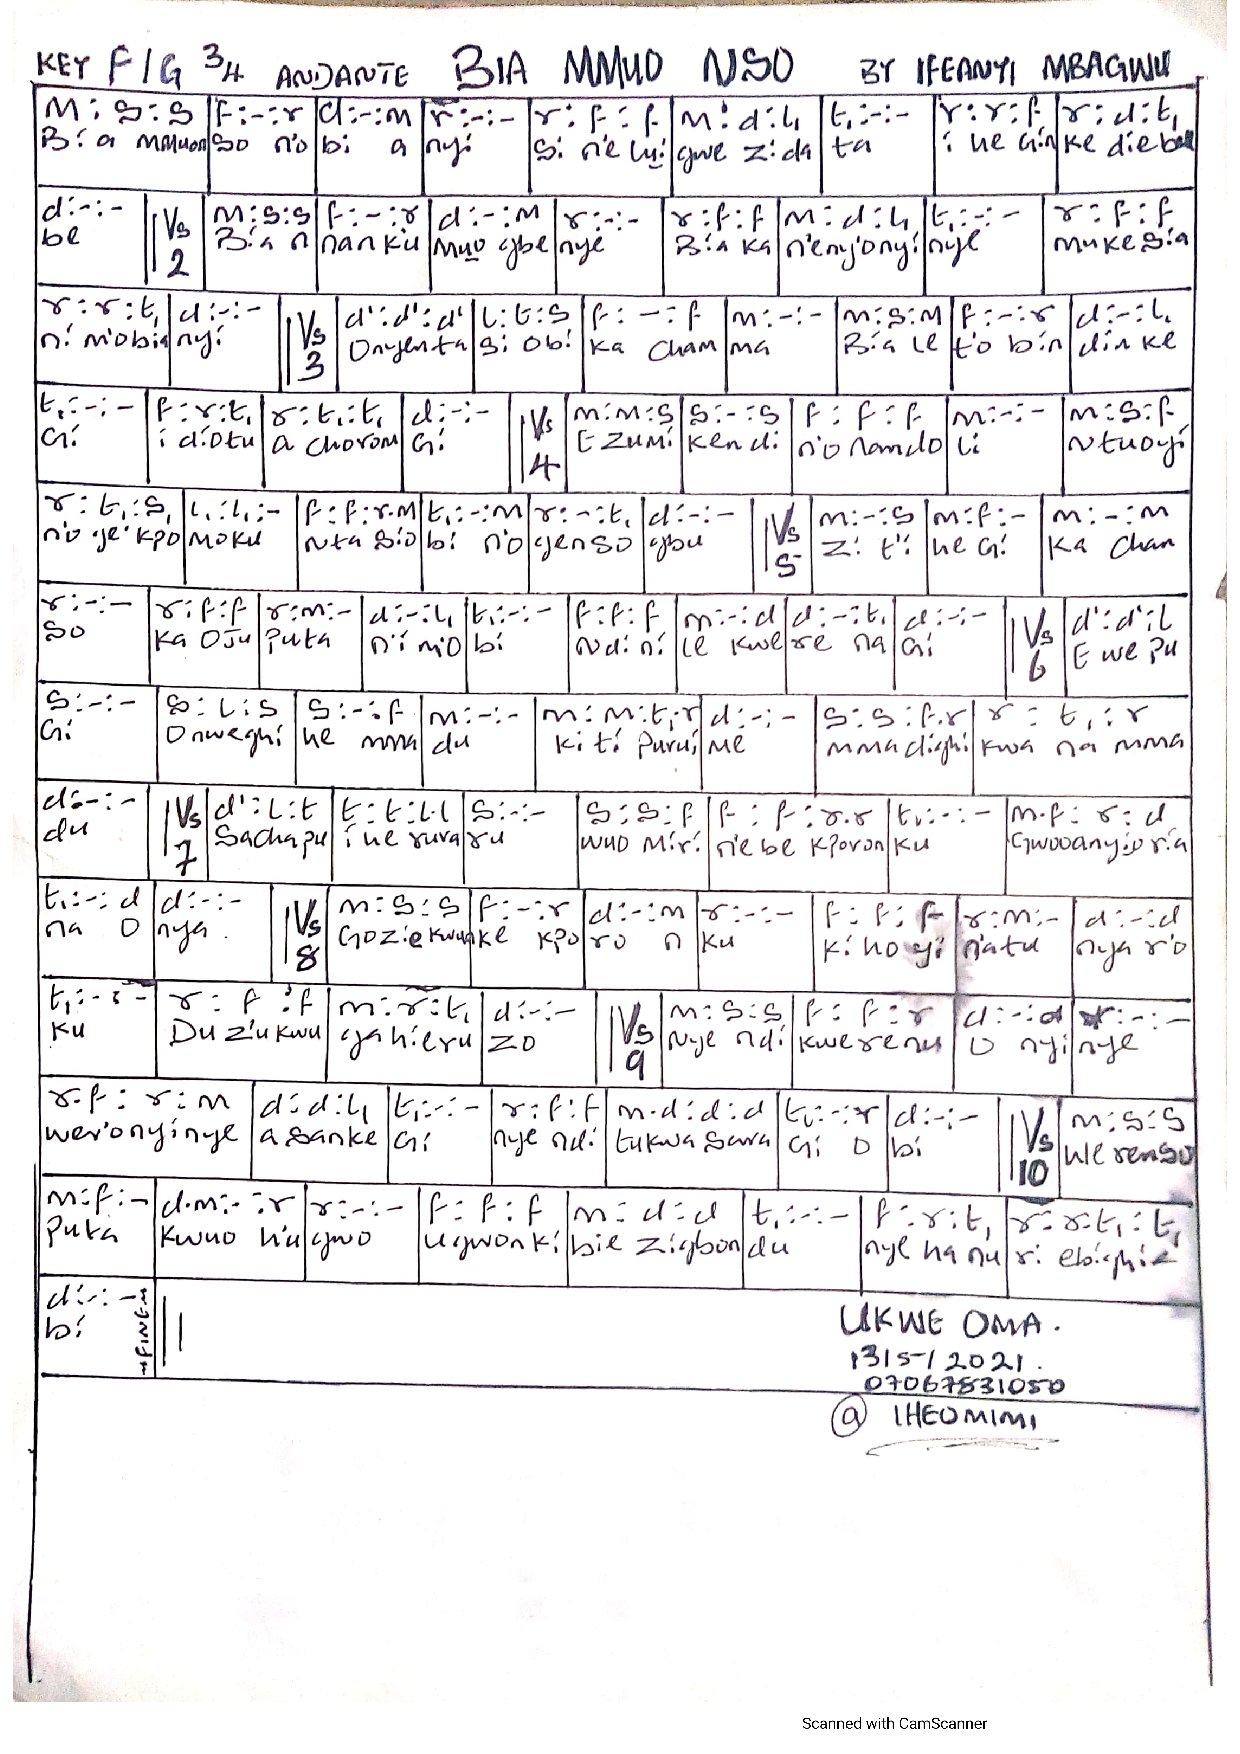 KEY F/G 3/4 ANDANTE BIA MMUO NSO BY IFEANYI MBAGWU
m : s : s | f : - : r | d : - : m | r : - : - | r : f : f | m : d : l, | t, : - : - | r : r : f | r : d : t,
Bi a mmuon so n'o bi a nyi si n'e lu gwe zi da ta i he Gin ke die
d : - : - | Vs 2 | m : s : s | f : - : r | d : - : m | r : - : - | r : f : f | m : d : l, | t, : - : - | r : f : f
be Bia n nan ku muo gbe nye Bia ka n'enyonyi nye mu ke sia
r : r : t, | d : - : - | Vs 3 | d' : d' : d' | l : t : s | f : - : f | m : - : - | m : s : m | f : - : r | d : - : l,
ni m'obia nyi Onyenta si obi ka cham ma Bia le t'o bin din ke
t, : - : - | f : r : t, | r : t, : t, | d : - : - | Vs 4 | m : m : s | s : - : s | f : f : f | m : - : - | m : s : f
Gi i diotu a chorom Gi E zumi ken di n'o namdo li ntuoyi
r : t, : s, | l, : l, : - | f : f : r.m | t, : - : m | r : - : t, | d : - : - | Vs 5 | m : - : s | m : f : - | m : - : m
n'o ye kpo moku nta sio bi n'o genso gbu Zi t'i he Gi ka chan
r : - : - | r : f : f | r : m : - | d : - : l, | t, : - : - | f : f : f | m : - : d | d : - : t, | d : - : - | Vs 6 | d' : d' : l
so ka oju puta n'i m'o bi ndi ni le kwe re na Gi E we pu
s : - : - | s : l : s | s : - : f | m : - : - | m : m : t,.r | d : - : - | s : s : f.r | r : t, : r
Gi onweghi he mma du ki ti purui me mma dighi kwa na mma
d : - : - | Vs 7 | d' : l : t | t : t : l.l | s : - : - | s : s : f | f : f : r.r | t, : - : - | m.f : r : d
du Sachapu i he ruva ru wuo miri n'e be kporon ku
t, : - : d | d : - : - | Vs 8 | m : s : s | f : - : r | d : - : m | r : - : - | f : f : f | r : m : - | d : - : d
na o nya ke kpo ro n ku ki ho yi n'atu nya r'o
t, : - : - | r : f : f | m : r : t, | d : - : - | Vs 9 | m : s : s | f : f : r | d : - : d | r : - : -
ku Du zi'u kwu gahieru zo Nye ndi kwerenu o nyi nye
r.f : r : m | d : d : l, | t, : - : - | r : f : f | m.d : d : d | t, : - : r | d : - : - | Vs 10 | m : s : s
wer'onyinye a sanke Gi nye ndi tukwa sara Gi o bi We renso
m : f : - | d.m : - : r | r : - : - | f : f : f | m : d : d | t, : - : - | f : r : t, | r : r.t, : t,
puta kwuo h'u gwo ugwonki bie zigbon du nye ha nu ri ebighie
d : - : - FINE
bi
UKWE OMA.
13/5/2021.
07067831050
@ IHEOMIMI
Scanned with CamScanner